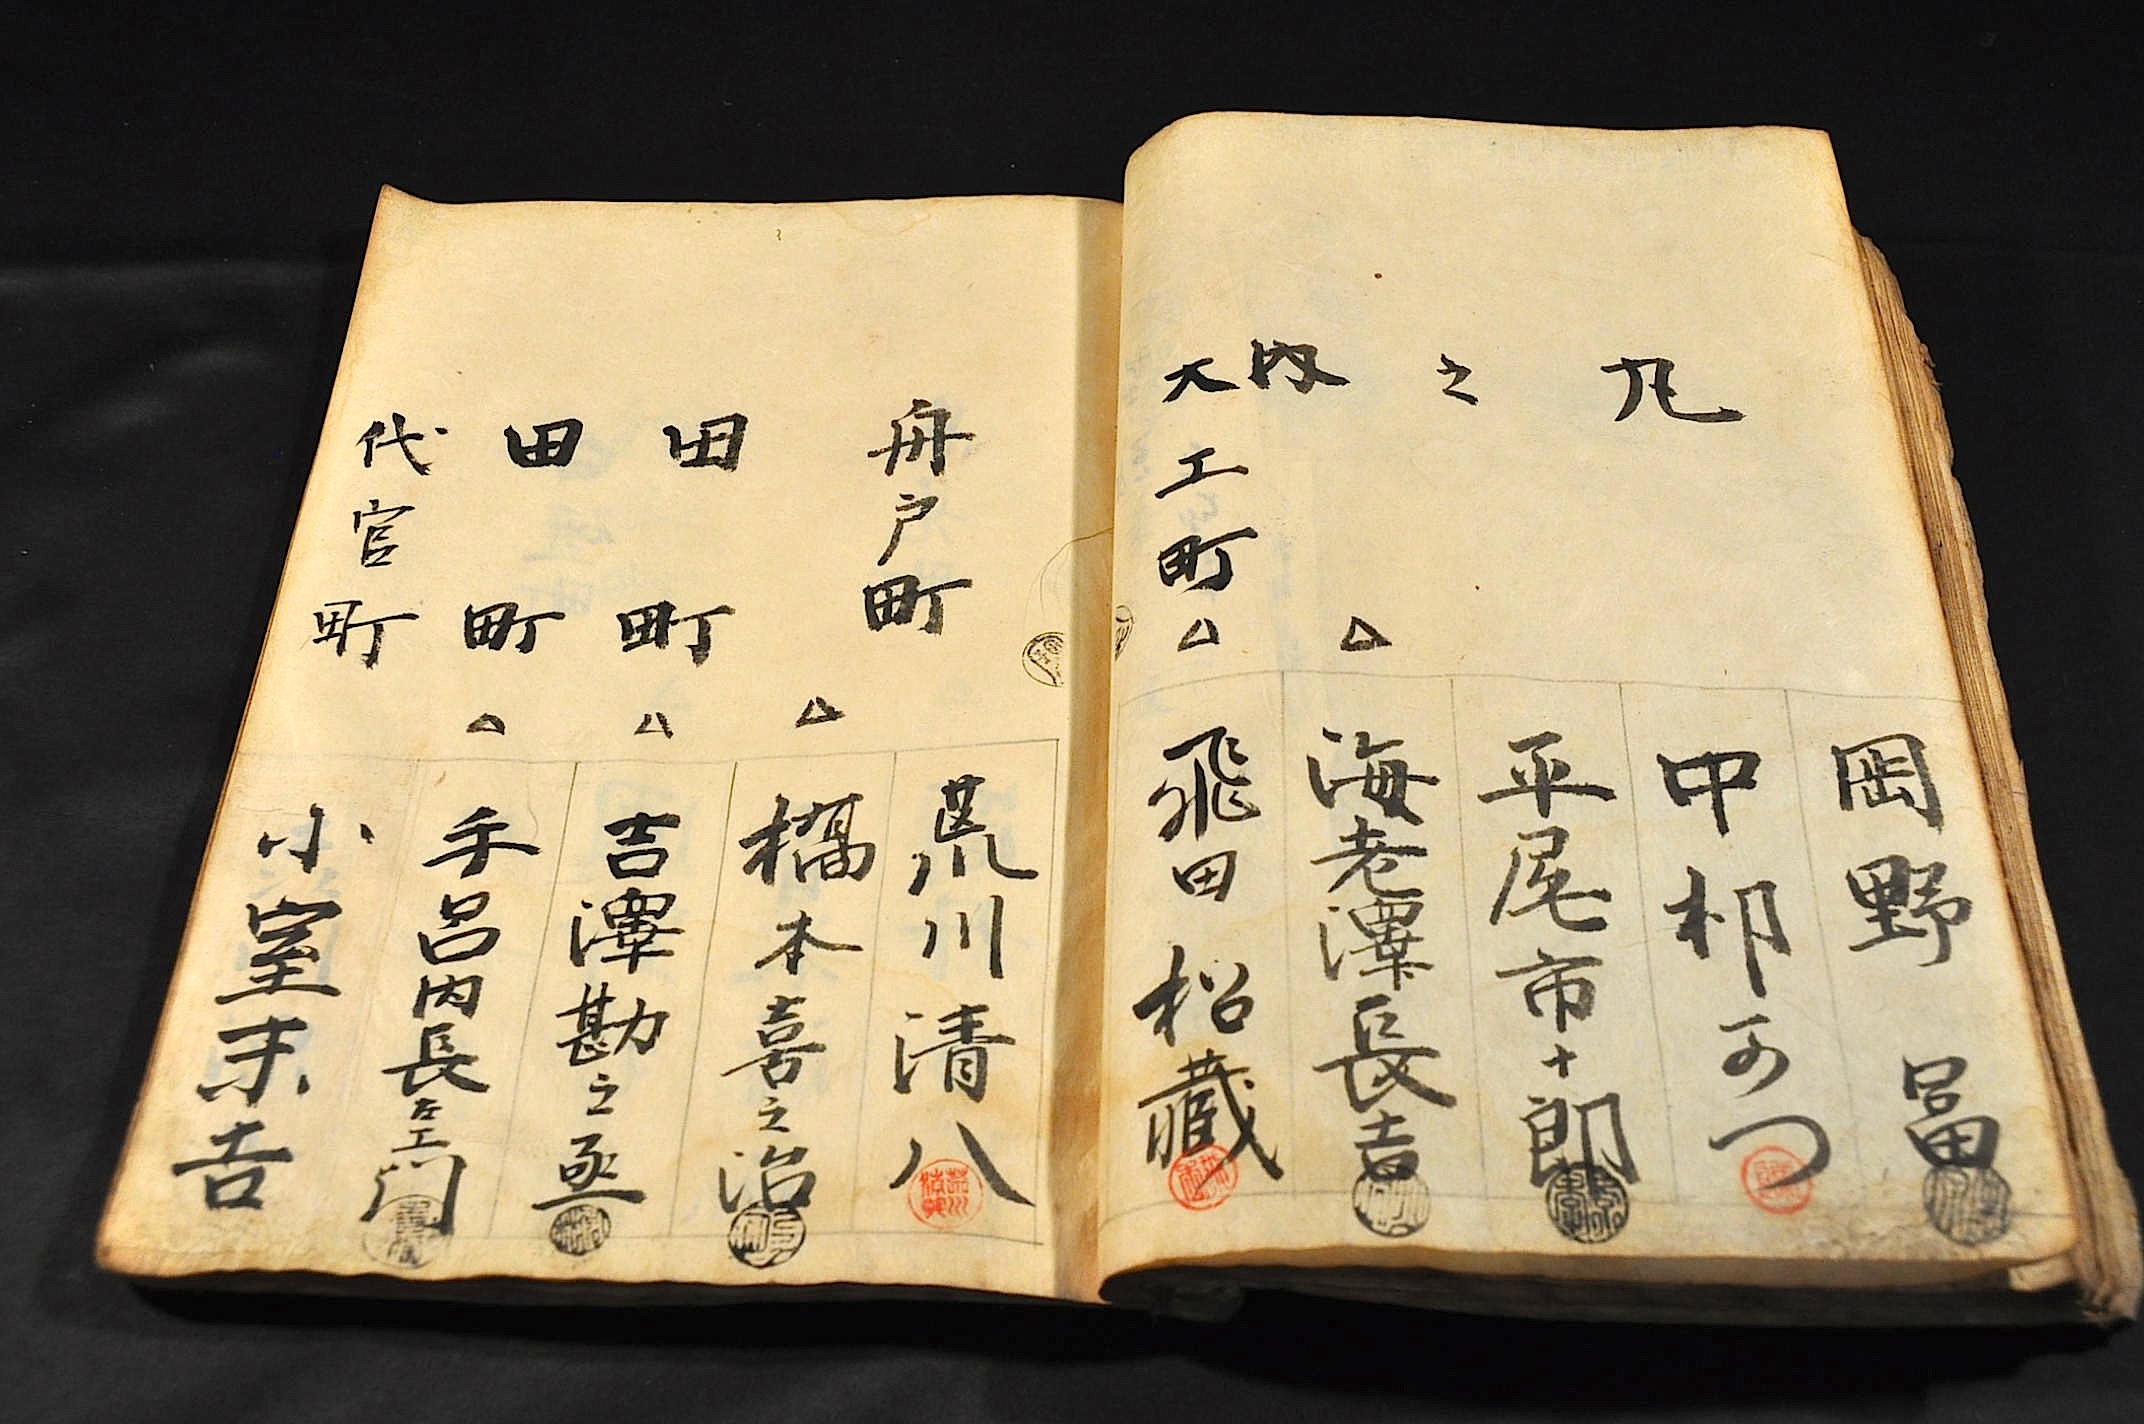 丸之内
岡野冨
中村
平尾市十郎
海老澤長吉
大工町
飛田松藏
舟戸町
荒川清八
橋本喜之治
田町
吉澤勘之丞
田町
手呂内長左工門
代官町
小室末吉